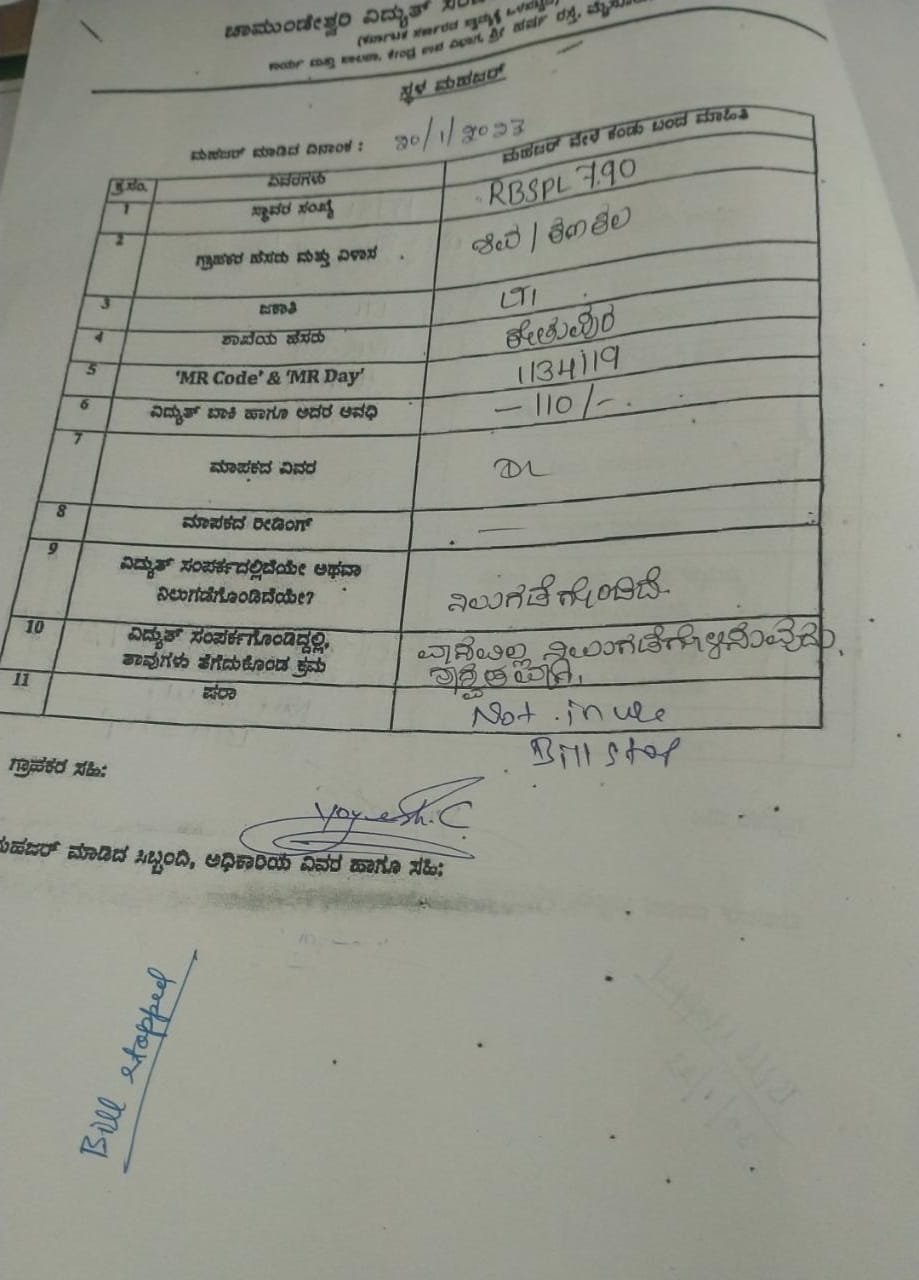 ಚಾಮುಂಡೇಶ್ವರಿ ವಿದ್ಯುತ್
(ಕರ್ನಾಟಕ ಸರ್ಕಾರದ ಸ್ವಾಮ್ಯಕ್ಕೆ ಒಳಪಟ್ಟಿದೆ)
ಸ್ಥಳ ಮಹಜರ್
ಮಹಜರ್ ಮಾಡಿದ ದಿನಾಂಕ : 20/1/2023
ಕ್ರ.ಸಂ. ವಿವರಗಳು ಮಹಜರ್ ವೇಳೆ ಕಂಡು ಬಂದ ಮಾಹಿತಿ
1 ಸ್ಥಾವರ ಸಂಖ್ಯೆ RBSPL 790
2 ಗ್ರಾಹಕರ ಹೆಸರು ಮತ್ತು ವಿಳಾಸ
3 ಜಕಾತಿ
4 ಶಾಖೆಯ ಹೆಸರು
5 'MR Code' & 'MR Day' 1134119
6 ವಿದ್ಯುತ್ ಬಾಕಿ ಹಾಗೂ ಅದರ ಅವಧಿ – 110/-
7 ಮಾಪಕದ ವಿವರ DL
8 ಮಾಪಕದ ರೀಡಿಂಗ್ —
9 ವಿದ್ಯುತ್ ಸಂಪರ್ಕದಲ್ಲಿದೆಯೇ ಅಥವಾ
ನಿಲುಗಡೆಗೊಂಡಿದೆಯೇ? ನಿಲುಗಡೆಗೊಂಡಿದೆ.
10 ವಿದ್ಯುತ್ ಸಂಪರ್ಕಗೊಂಡಿದ್ದಲ್ಲಿ,
ತಾವುಗಳು ತೆಗೆದುಕೊಂಡ ಕ್ರಮ
11 ಷರಾ Not in use
Bill stop
ಗ್ರಾಹಕರ ಸಹಿ:
Yogesh.C
ಮಹಜರ್ ಮಾಡಿದ ಸಿಬ್ಬಂದಿ, ಅಧಿಕಾರಿಯ ವಿವರ ಹಾಗೂ ಸಹಿ:
Bill stopped